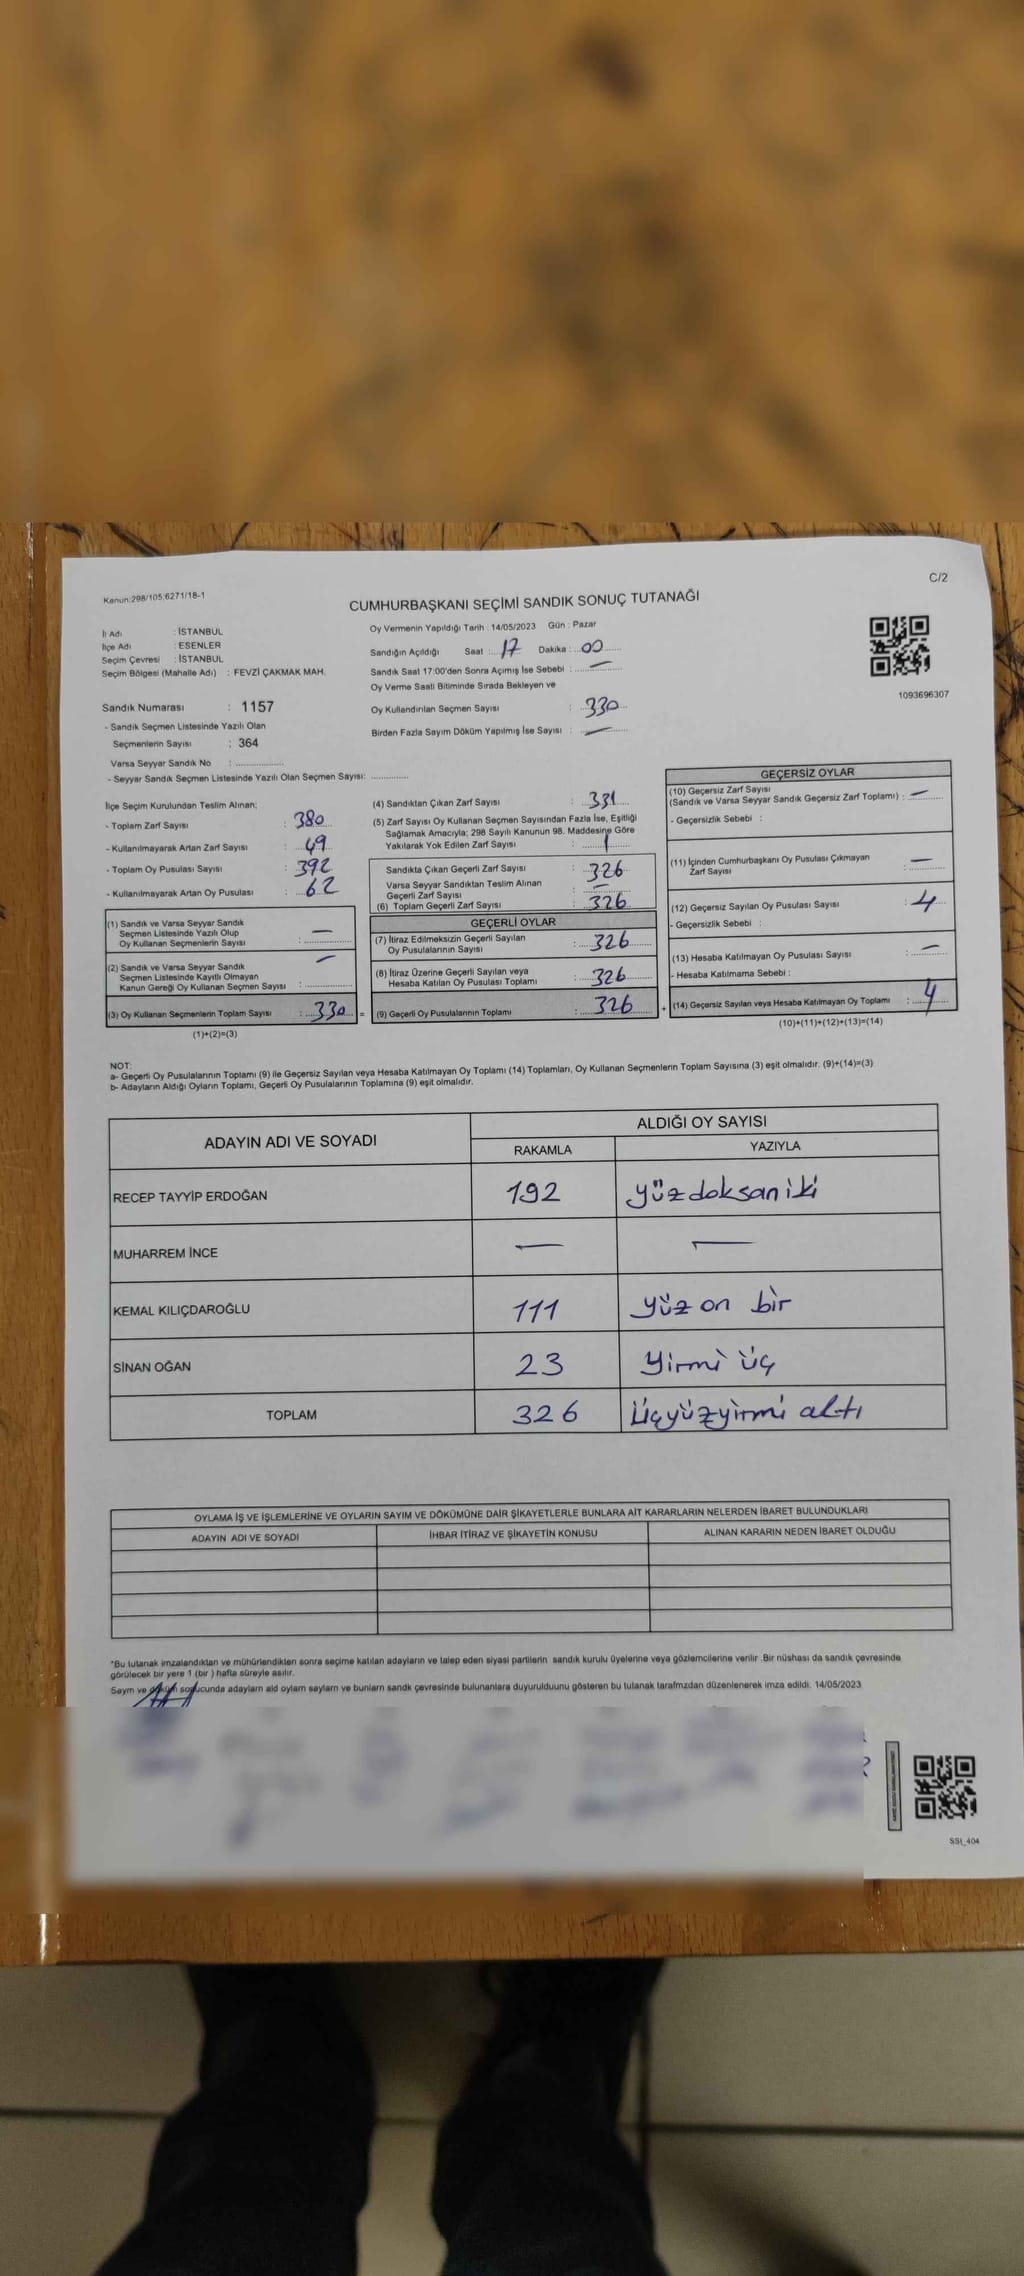 Kanun:298/105;6271/18-1
C/2
CUMHURBAŞKANI SEÇİMİ SANDIK SONUÇ TUTANAĞI
İl Adı : İSTANBUL
İlçe Adı : ESENLER
Seçim Çevresi : İSTANBUL
Seçim Bölgesi (Mahalle Adı) : FEVZİ ÇAKMAK MAH.
Oy Vermenin Yapıldığı Tarih : 14/05/2023 Gün : Pazar
Sandığın Açıldığı Saat : 17 Dakika : 00
Sandık Saat 17:00'den Sonra Açımış İse Sebebi : —
Oy Verme Saati Bitiminde Sırada Bekleyen ve
Oy Kullandırılan Seçmen Sayısı : 330
Birden Fazla Sayım Döküm Yapılmış İse Sayısı : —
1093696307
Sandık Numarası : 1157
- Sandık Seçmen Listesinde Yazılı Olan
Seçmenlerin Sayısı : 364
Varsa Seyyar Sandık No : ..............
- Seyyar Sandık Seçmen Listesinde Yazılı Olan Seçmen Sayısı: ..............
İlçe Seçim Kurulundan Teslim Alınan;
- Toplam Zarf Sayısı : 380
- Kullanılmayarak Artan Zarf Sayısı : 49
- Toplam Oy Pusulası Sayısı : 392
- Kullanılmayarak Artan Oy Pusulası : 62
(1) Sandık ve Varsa Seyyar Sandık
Seçmen Listesinde Yazılı Olup
Oy Kullanan Seçmenlerin Sayısı : —
(2) Sandık ve Varsa Seyyar Sandık
Seçmen Listesinde Kayıtlı Olmayan
Kanun Gereği Oy Kullanan Seçmen Sayısı : —
(3) Oy Kullanan Seçmenlerin Toplam Sayısı : 330 =
(1)+(2)=(3)
(4) Sandıktan Çıkan Zarf Sayısı : 331
(5) Zarf Sayısı Oy Kullanan Seçmen Sayısından Fazla İse, Eşitliği
Sağlamak Amacıyla; 298 Sayılı Kanunun 98. Maddesine Göre
Yakılarak Yok Edilen Zarf Sayısı : 1
Sandıkta Çıkan Geçerli Zarf Sayısı : 326
Varsa Seyyar Sandıktan Teslim Alınan
Geçerli Zarf Sayısı : —
(6) Toplam Geçerli Zarf Sayısı : 326
GEÇERLİ OYLAR
(7) İtiraz Edilmeksizin Geçerli Sayılan
Oy Pusulalarının Sayısı : 326
(8) İtiraz Üzerine Geçerli Sayılan veya
Hesaba Katılan Oy Pusulası Toplamı : 326
(9) Geçerli Oy Pusulalarının Toplamı : 326 +
GEÇERSİZ OYLAR
(10) Geçersiz Zarf Sayısı
(Sandık ve Varsa Seyyar Sandık Geçersiz Zarf Toplamı) : —
- Geçersizlik Sebebi :
(11) İçinden Cumhurbaşkanı Oy Pusulası Çıkmayan
Zarf Sayısı : —
(12) Geçersiz Sayılan Oy Pusulası Sayısı : 4
- Geçersizlik Sebebi :
(13) Hesaba Katılmayan Oy Pusulası Sayısı : —
- Hesaba Katılmama Sebebi :
(14) Geçersiz Sayılan veya Hesaba Katılmayan Oy Toplamı : 4
(10)+(11)+(12)+(13)=(14)
NOT:
a- Geçerli Oy Pusulalarının Toplamı (9) ile Geçersiz Sayılan veya Hesaba Katılmayan Oy Toplamı (14) Toplamları, Oy Kullanan Seçmenlerin Toplam Sayısına (3) eşit olmalıdır. (9)+(14)=(3)
b- Adayların Aldığı Oyların Toplamı, Geçerli Oy Pusulalarının Toplamına (9) eşit olmalıdır.
ADAYIN ADI VE SOYADI
ALDIĞI OY SAYISI
RAKAMLA YAZIYLA
RECEP TAYYİP ERDOĞAN 192 yüzdoksan iki
MUHARREM İNCE — —
KEMAL KILIÇDAROĞLU 111 yüz on bir
SİNAN OĞAN 23 yirmi üç
TOPLAM 326 üçyüzyirmi altı
OYLAMA İŞ VE İŞLEMLERİNE VE OYLARIN SAYIM VE DÖKÜMÜNE DAİR ŞİKAYETLERLE BUNLARA AİT KARARLARIN NELERDEN İBARET BULUNDUKLARI
ADAYIN ADI VE SOYADI İHBAR İTİRAZ VE ŞİKAYETİN KONUSU ALINAN KARARIN NEDEN İBARET OLDUĞU
*Bu tutanak imzalandıktan ve mühürlendikten sonra seçime katılan adayların ve talep eden siyasi partilerin sandık kurulu üyelerine veya gözlemcilerine verilir .Bir nüshası da sandık çevresinde
görülecek bir yere 1 (bir ) hafta süreyle asılır.
Saym ve döküm sonucunda adaylarn ald oylarn saylarn ve bunlarn sandk çevresinde bulunanlara duyurulduunu gösteren bu tutanak tarafmzdan düzenlenerek imza edildi. 14/05/2023
SSI_404